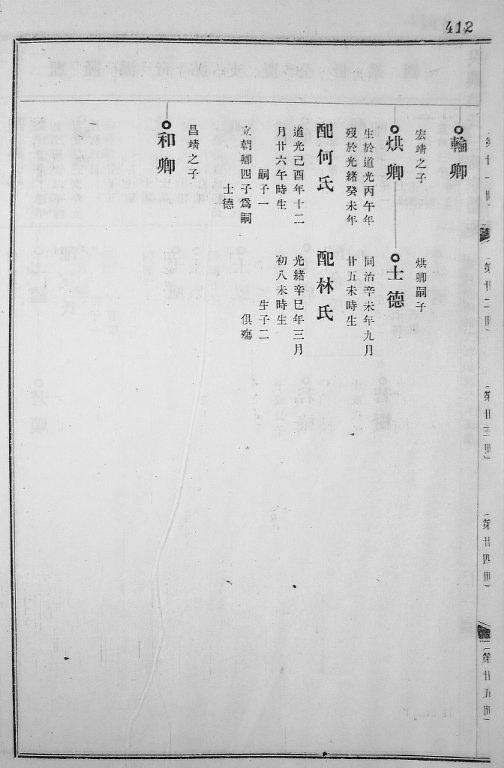 412
輪卿
宏靖之子
烘卿
生於道光丙午年
歿於光緒癸未年
配何氏
道光己酉年十二
月廿六午時生
嗣子一
立朝卿四子為嗣
士德
昌靖之子
和卿
烘卿嗣子
士德
同治辛未年九月
廿五未時生
配林氏
光緒辛巳年三月
初八未時生
生子二
俱殤
第廿二世
第廿三世
第廿四世
第廿五世